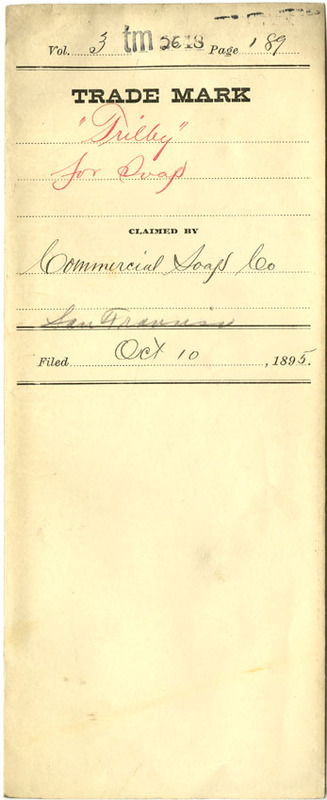 Vol. 3 tm 2618 Page 189
TRADE MARK
"Trilby"
for Soap
CLAIMED BY
Commercial Soap Co
San Francisco
Filed Oct 10, 1895.